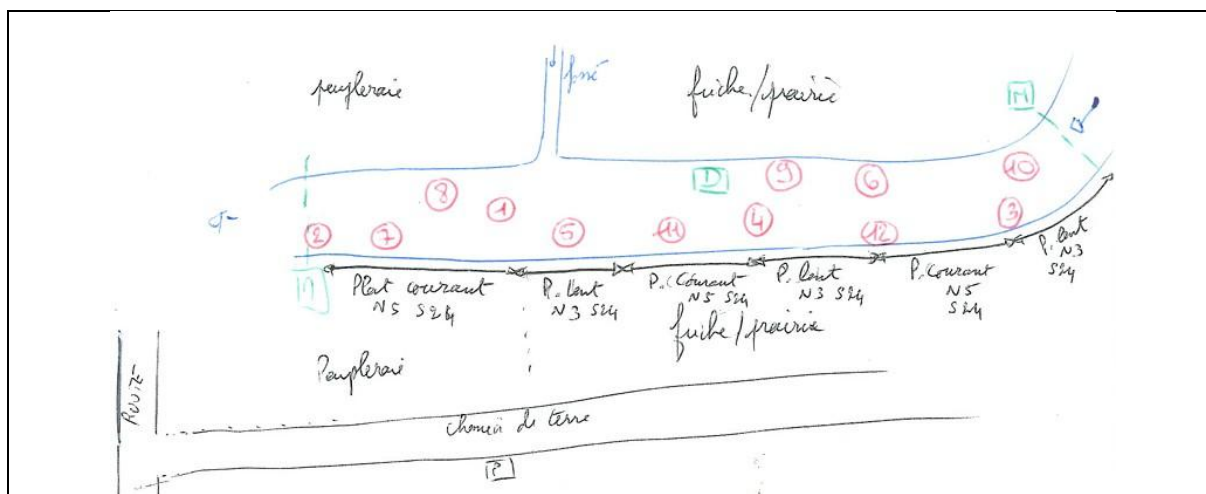 peupleraie
fossé
friche/prairie
M
D
9
6
10
8
1
4
3
2
7
5
11
12
Plat courant
N5 S24
P. lent
N3 S24
P. Courant
N5 S24
P. lent
N3 S24
P. courant
N5
S24
P. lent
N3
S24
friche/prairie
Peupleraie
ROUTE
chemin de terre
P